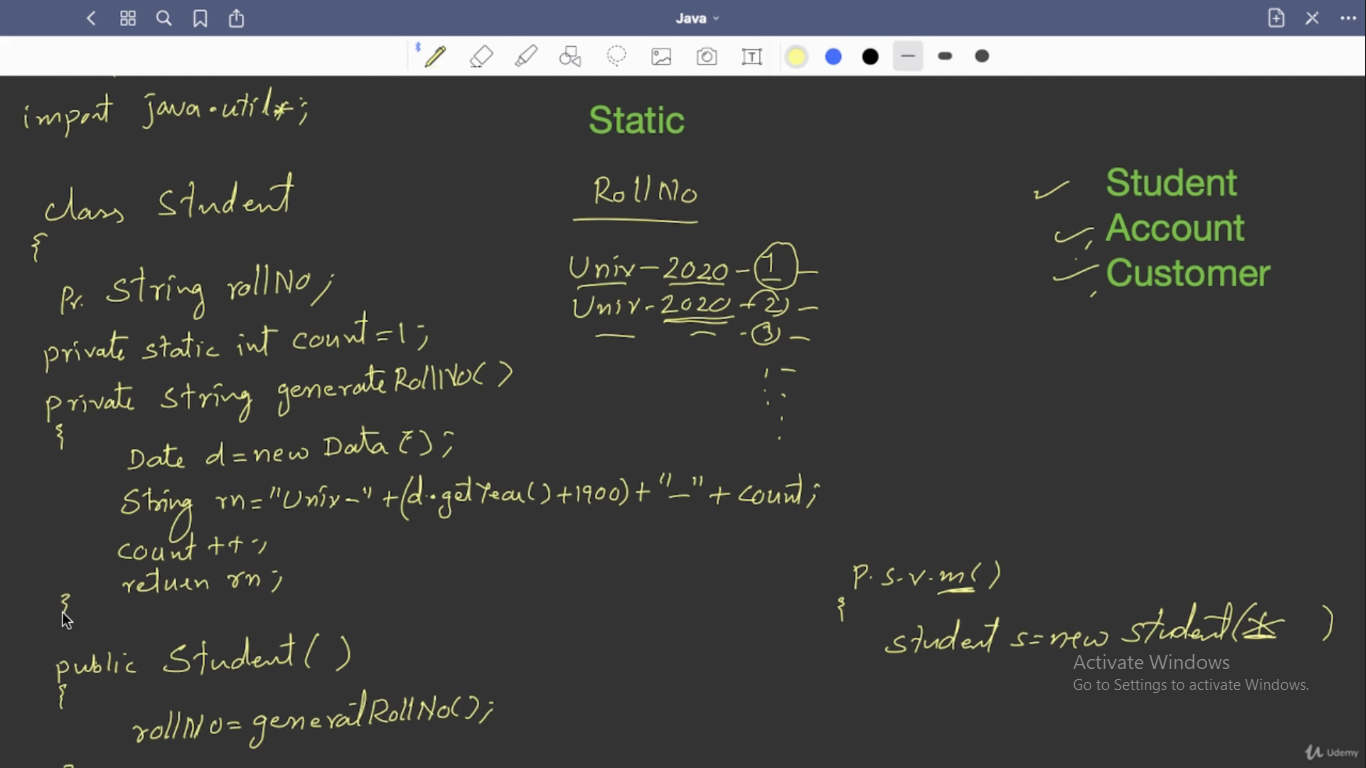 Java
import java.util*;
Static
class Student
{
Pr. String rollNo;
private static int count=1;
private String generateRollNo()
{
Date d=new Data();
String rn="Univ-"+(d.getYear()+1900)+"-"+count;
count++;
return rn;
}
public Student()
{
rollNo=generalRollNo();
RollNo
Univ-2020-1-
Univ-2020-2-
-3-
Student
Account
Customer
P.s.v.m()
{
student s=new student( )
Activate Windows
Go to Settings to activate Windows.
Udemy